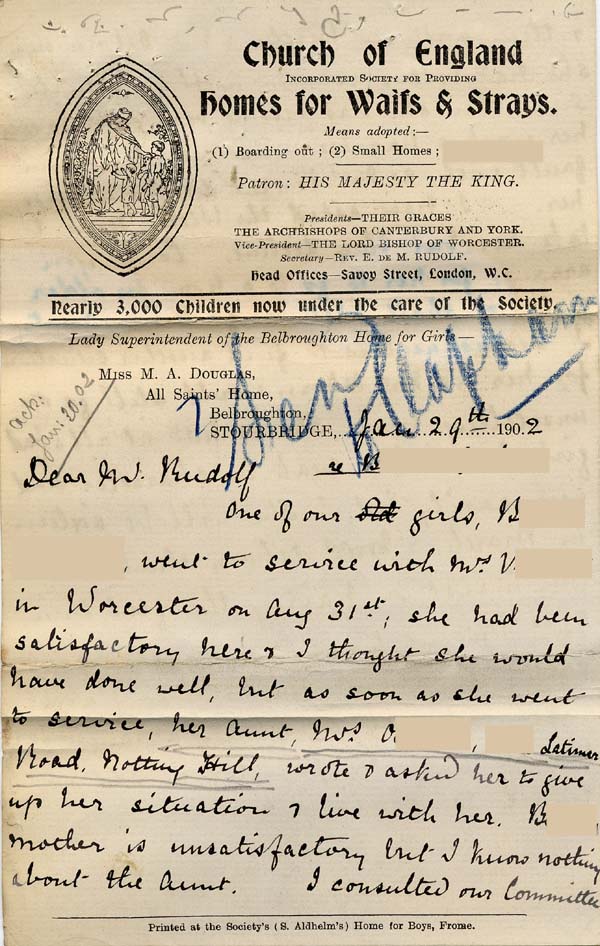 Church of England
Incorporated Society for Providing
Homes for Waifs & Strays.
Means adopted:—
(1) Boarding out ; (2) Small Homes ;
Patron: HIS MAJESTY THE KING.
Presidents—THEIR GRACES
THE ARCHBISHOPS OF CANTERBURY AND YORK.
Vice-President—THE LORD BISHOP OF WORCESTER.
Secretary—Rev. E. de M. RUDOLF.
Head Offices—Savoy Street, London, W.C.
Nearly 3,000 Children now under the care of the Society.
Lady Superintendent of the Belbroughton Home for Girls—
Miss M. A. Douglas,
All Saints' Home,
Belbroughton,
STOURBRIDGE, Jan 29th 1902
ack:
Jan: 20. 02
Clapham
Dear Mr. Rudolf
re B
One of our old girls, B
, went to service with Mrs V
in Worcester on Aug 31st, she had been
satisfactory here & I thought she would
have done well, but as soon as she went
to service, her Aunt, Mrs O , Latimer
Road, Notting Hill, wrote & asked her to give
up her situation & live with her. B
mother is unsatisfactory but I know nothing
about the Aunt. I consulted our Committee
Printed at the Society's (S. Aldhelm's) Home for Boys, Frome.